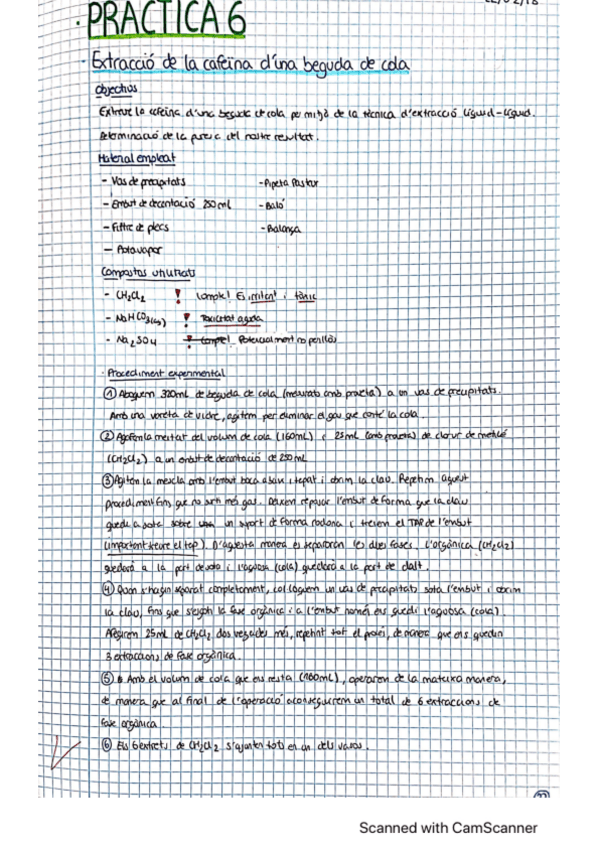 22/02/18
· PRÀCTICA 6
· Extracció de la cafeïna d'una beguda de cola
Objectius
Extreure la cafeïna d'una beguda de cola per mitjà de la tècnica d'extracció líquid-líquid.
Determinació de la puresa del nostre resultat.
Material empleat
- Vas de precipitats - Pipeta Pasteur
- Embut de decantació 250 mL - Baló
- Filtre de plecs - Balança
- Rotavapor
Compostos utilitzats
- CH2Cl2 ! Compte! És irritant i tòxic
- NaHCO3(aq) ! Toxicitat aguda
- Na2SO4 Potencialment no perillós
· Procediment experimental
① Aboquem 320mL de beguda de cola (mesurats amb proveta) a un vas de precipitats.
Amb una vareta de vidre, agitem per eliminar el gas que conté la cola.
② Agafem la meitat del volum de cola (160mL) i 25mL (amb proveta) de clorur de metilè
(CH2Cl2) a un embut de decantació de 250 mL
③ Agitem la mescla amb l'embut boca abaix i tapat i obrim la clau. Repetim aquest
procediment fins que no surti més gas. Deixem reposar l'embut de forma que la clau
quedi a sota sobre un suport de forma rodona i treiem el TAP de l'embut
(important treure el tap). D'aquesta manera es separaran les dues fases. L'orgànica (CH2Cl2)
quedarà a la part de sota i l'aquosa (cola) quedarà a la part de dalt.
④ Quan s'hagin separat completament, col·loquem un vas de precipitats sota l'embut i obrim
la clau, fins que s'escoli la fase orgànica i a l'embut només ens quedi l'aquosa (cola).
Afegirem 25mL de CH2Cl2 dos vegades més, repetint tot el procés, de manera que ens quedin
3 extraccions de fase orgànica.
⑤ Amb el volum de cola que ens resta (160mL), operarem de la mateixa manera,
de manera que al final de l'operació aconseguirem un total de 6 extraccions de
fase orgànica.
⑥ Els 6 extrets de CH2Cl2 s'ajunten tots en un dels vasos.
Scanned with CamScanner